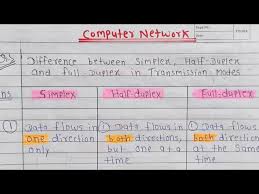 Computer Network
Difference between Simplex, Half-Duplex
and full-Duplex in Transmission Modes
Simplex Half-duplex Full-duplex
① Data flows in ① Data flows in ① Data flows in
one direction both directions, both directions
only but one at a at the same
time time